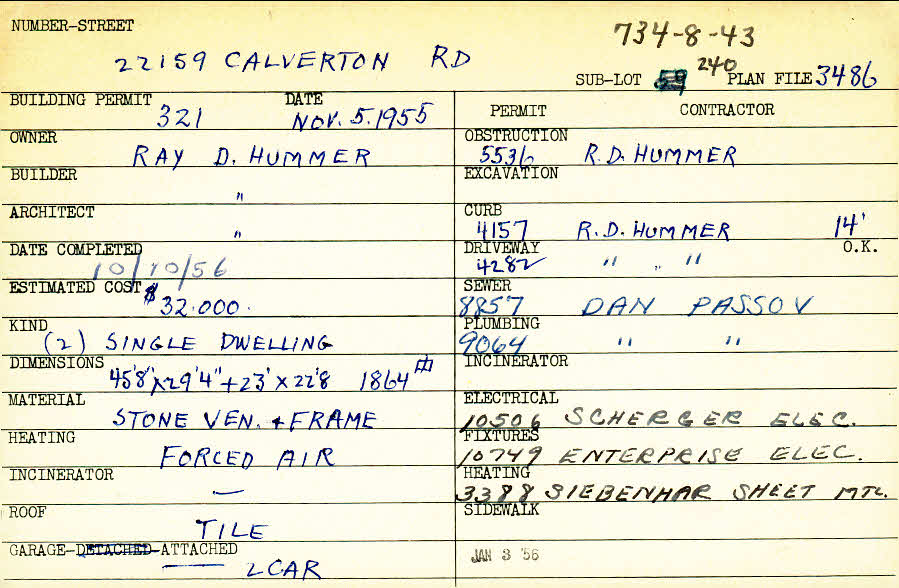 NUMBER-STREET
734-8-43
22159 CALVERTON RD
SUB-LOT 59 240 PLAN FILE 3486
BUILDING PERMIT DATE
321 NOV. 5. 1955
PERMIT CONTRACTOR
OWNER
RAY D. HUMMER
OBSTRUCTION
5536 R.D. HUMMER
BUILDER
"
EXCAVATION
ARCHITECT
"
CURB
4157 R.D. HUMMER 14'
DATE COMPLETED
10/10/56
DRIVEWAY O.K.
4282 " " "
ESTIMATED COST
$32.000.
SEWER
8857 DAN PASSOV
KIND
(2) SINGLE DWELLING
PLUMBING
9064 " "
DIMENSIONS
45'8" x 29'4" + 23' x 22'8 1864
INCINERATOR
MATERIAL
STONE VEN. + FRAME
ELECTRICAL
10506 SCHERGER ELEC.
HEATING
FORCED AIR
FIXTURES
10749 ENTERPRISE ELEC.
INCINERATOR
—
HEATING
3388 SIEBENHAR SHEET MTL.
ROOF
TILE
SIDEWALK
GARAGE-DETACHED-ATTACHED
2 CAR
JAN 3 '56